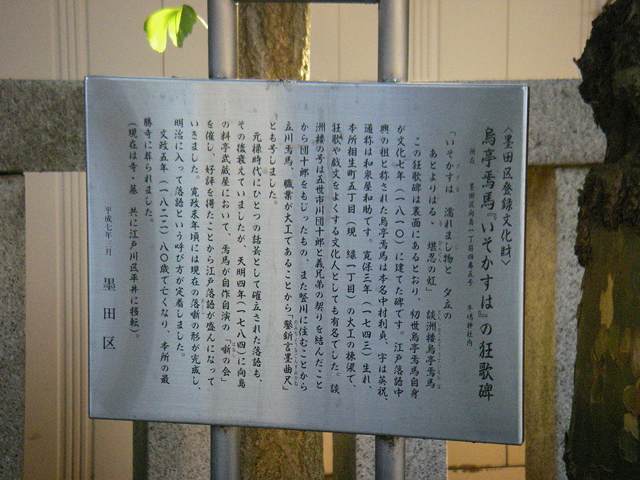 〈墨田区登録文化財〉
烏亭焉馬『いそかすは』の狂歌碑
所在 墨田区向島一丁目四番五号
牛嶋神社内
「いそかすは 濡れまし物と 夕立の
あとよりはるゝ 堪忍の虹」 談洲楼烏亭焉馬
この狂歌碑は裏面にあるとおり、初世烏亭焉馬自身
が文化七年(一八一〇)に建てた碑です。江戸落語中
興の祖と称された烏亭焉馬は本名中村利貞、字は英祝、
通称は和泉屋和助です。寛保三年(一七四三)生れ、
本所相生町五丁目(現 緑一丁目)の大工の棟梁で、
狂歌や戯文をよくする文化人としても有名でした。談
洲楼の号は五世市川団十郎と義兄弟の契りを結んだこと
から団十郎をもじったもの、また竪川に住むことから
立川焉馬、職業が大工であることから「鑿釿言墨曲尺」
とも号しました。
元禄時代にひとつの話芸として確立された落語も、
その後衰えていましたが、天明四年(一七八四)に向島
の料亭武蔵屋において、焉馬が自作自演の「噺の会」
を催し、好評を得たことから江戸落語が盛んになって
いきました。寛政末年頃には現在の落噺の形が完成し、
明治に入って落語という呼び方が定着しました。
文政五年(一八二二)八〇歳で亡くなり、本所の最
勝寺に葬られました。
(現在は寺・墓 共に江戸川区平井に移転)。
平成七年三月
墨田区